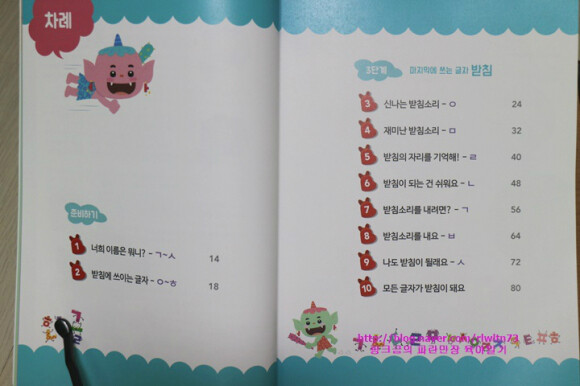 차례
준비하기
1 너희 이름은 뭐니? - ㄱ~ㅅ 14
2 받침에 쓰이는 글자 - ㅇ~ㅎ 18
3단계 마지막에 쓰는 글자 받침
3 신나는 받침소리 - ㅇ 24
4 재미난 받침소리 - ㅁ 32
5 받침의 자리를 기억해! - ㄹ 40
6 받침이 되는 건 쉬워요 - ㄴ 48
7 받침소리를 내려면? - ㄱ 56
8 받침소리를 내요 - ㅂ 64
9 나도 받침이 될래요 - ㅅ 72
10 모든 글자가 받침이 돼요 80